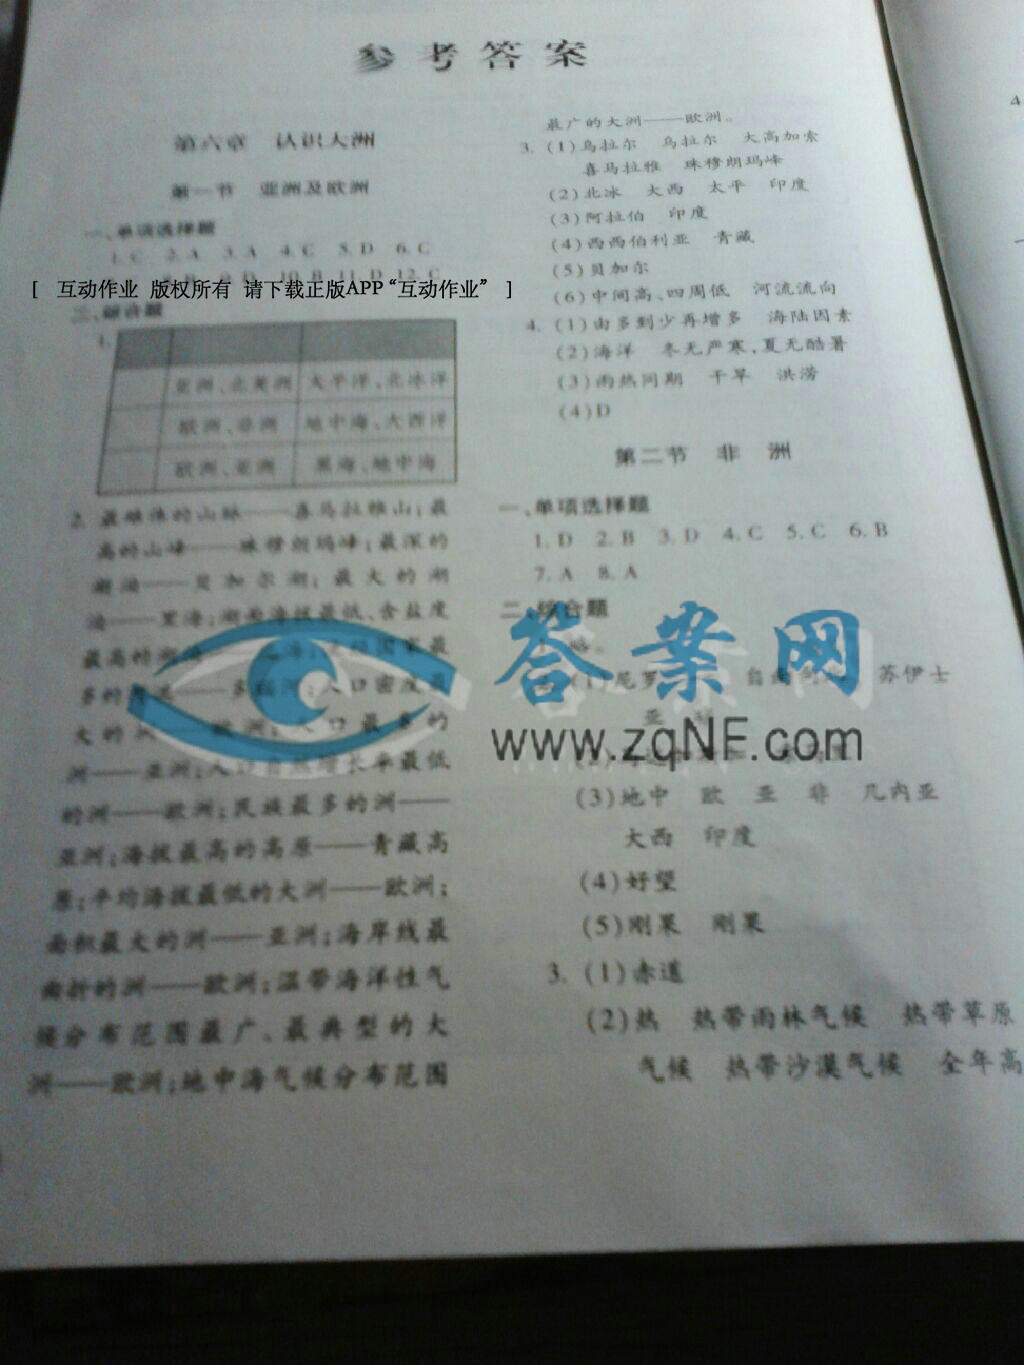 参考答案
第六章 认识大洲
第一节 亚洲及欧洲
一、单项选择题
1. C 2. A 3. A 4. C 5. D 6. C
8. B 9. D 10. B 11. D 12. C
[ 互动作业 版权所有 请下载正版APP“互动作业” ]
二、综合题
1.
亚洲、北美洲 太平洋、北冰洋
欧洲、非洲 地中海、大西洋
欧洲、亚洲 黑海、地中海
2. 最雄伟的山脉——喜马拉雅山；最
高的山峰——珠穆朗玛峰；最深的
湖泊——贝加尔湖；最大的湖
泊——里海；湖面海拔最低、含盐度
最高的湖泊
多的 人口密度最
大的洲 欧洲；人口最多的
洲——亚洲；人口自然增长率最低
的洲——欧洲；民族最多的洲——
亚洲；海拔最高的高原——青藏高
原；平均海拔最低的大洲——欧洲；
面积最大的洲——亚洲；海岸线最
曲折的洲——欧洲；温带海洋性气
候分布范围最广、最典型的大
洲——欧洲；地中海气候分布范围
最广的大洲——欧洲。
3. (1)乌拉尔 乌拉尔 大高加索
喜马拉雅 珠穆朗玛峰
(2)北冰 大西 太平 印度
(3)阿拉伯 印度
(4)西西伯利亚 青藏
(5)贝加尔
(6)中间高、四周低 河流流向
4. (1)由多到少再增多 海陆因素
(2)海洋 冬无严寒，夏无酷暑
(3)雨热同期 干旱 洪涝
(4)D
第二节 非 洲
一、单项选择题
1. D 2. B 3. D 4. C 5. C 6. B
7. A 8. A
二、综合题
略。
(1)尼罗 苏伊士
亚
(3)地中 欧 亚 非 几内亚
大西 印度
(4)好望
(5)刚果 刚果
3. (1)赤道
(2)热 热带雨林气候 热带草原
气候 热带沙漠气候 全年高
答案网
www.zqNF.com
4